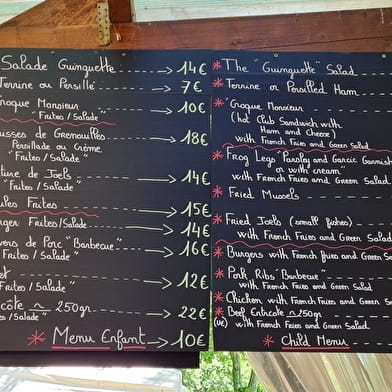 Salade Guinguette → 14€
Terrine ou Persillé → 7€
Croque Monsieur → 10€
"Frites / Salade"
Grenouilles → 18€
Persillade ou Crème
"Frites / Salade"
Friture de Joels → 14€
"Frites / Salade"
Moules Frites → 15€
Burger Frites/Salade → 14€
de Porc "Barbecue" → 16€
Frites / Salade"
→ 12€
Frites / Salade"
~ 250gr → 22€
/ Salade"
* Menu Enfant → 10€
* The "Guinguette" Salad
* Terrine or Persilled Ham
* "Croque Monsieur
(hot Club Sandwich with
Ham and Cheese)
with French Fries and Green Salad
* Frog Legs "Parsley and Garlic Garnish
or with cream"
with French Fries and Green Salad
* Fried Mussels
* Fried Joels (small fishes)
with French Fries and Green Salad
* Burgers with French Fries and Green
* Pork Ribs "Barbecue"
with French Fries and Green Salad
* Chicken with French Fries and Green
* Beef Entrecote ~250gr
(UE) with French Fries and Green Salad
* Child Menu